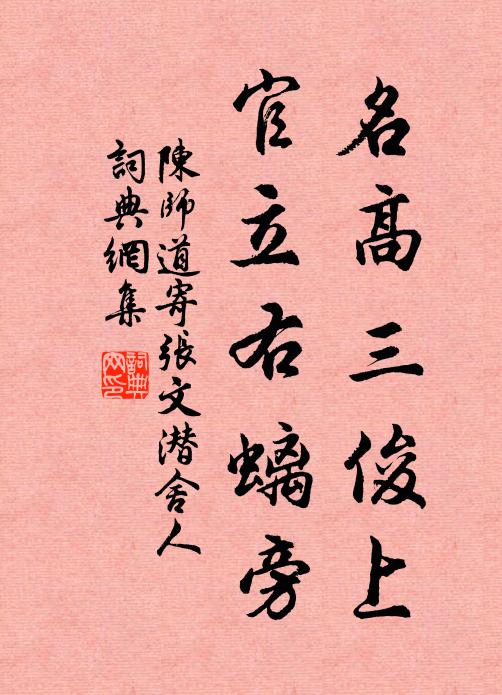 名高三俊上
官立右螭旁
陳師道寄張文潜舍人
詞典網集
詞典网印